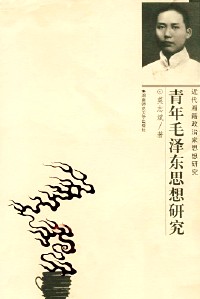 近代湘籍政治家思想研究
青年毛泽东思想研究
莫志斌/著